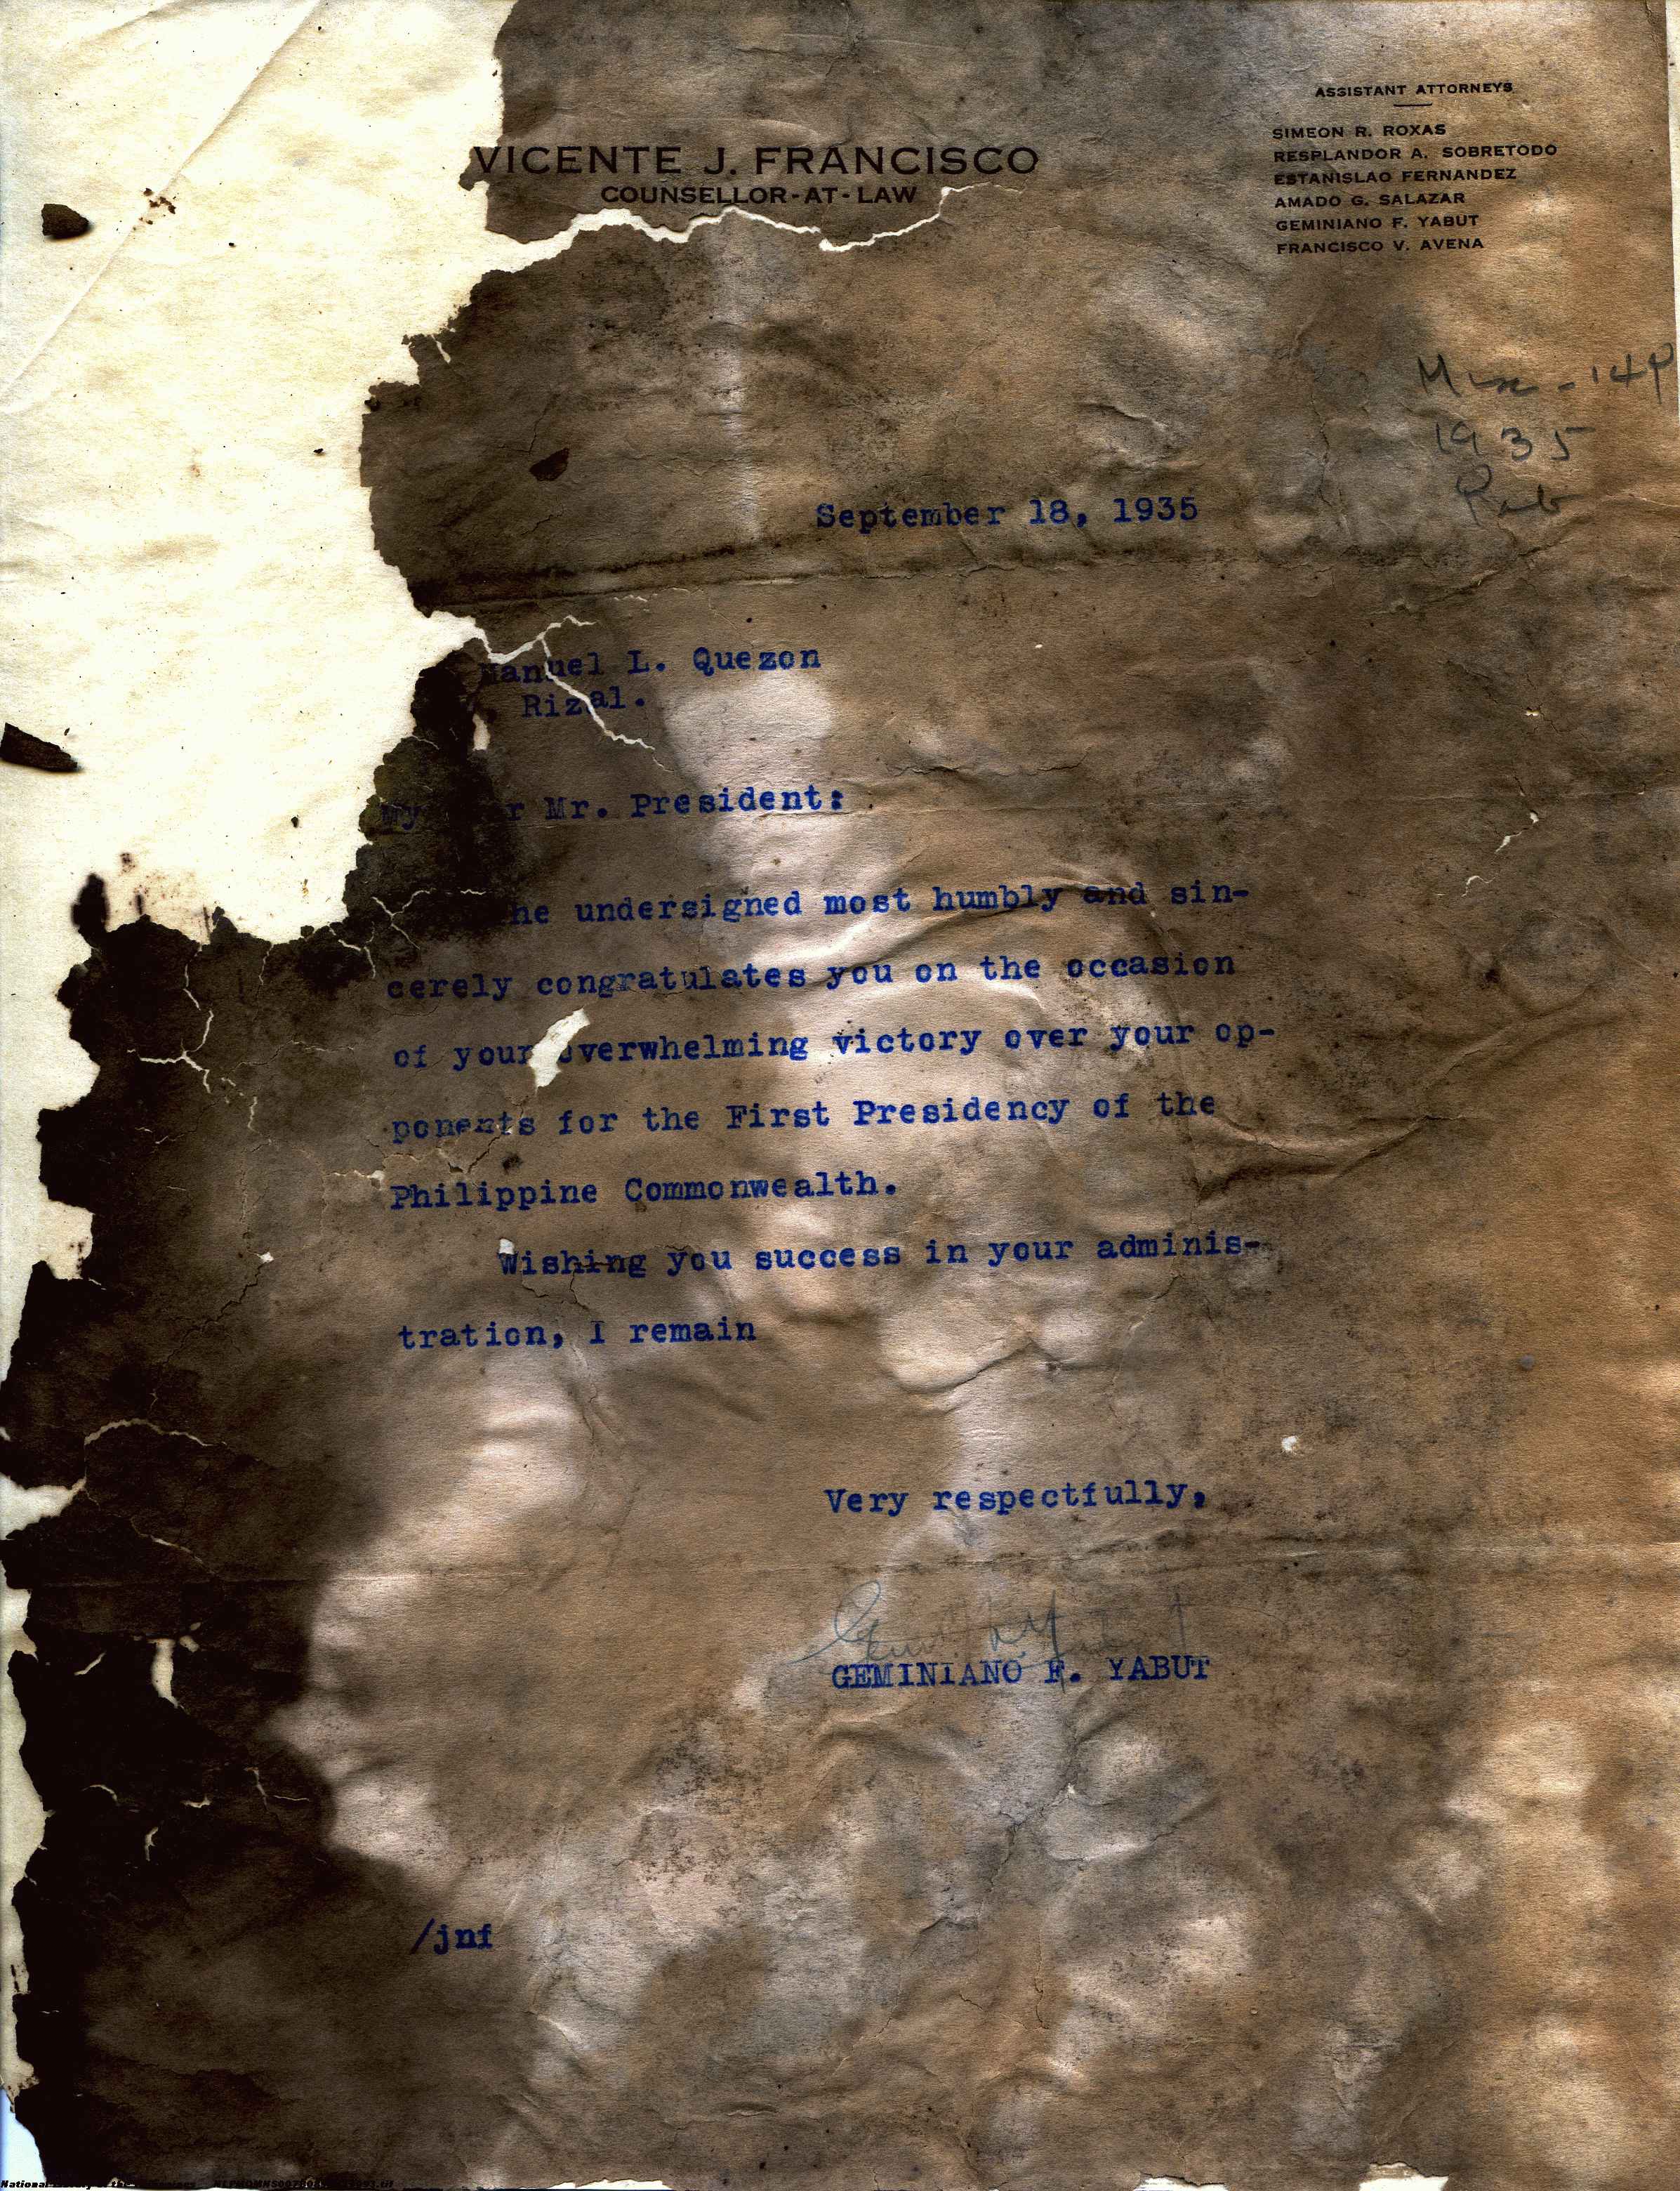 VICENTE J. FRANCISCO
COUNSELLOR-AT-LAW
ASSISTANT ATTORNEYS
SIMEON R. ROXAS
RESPLANDOR A. SOBRETODO
ESTANISLAO FERNANDEZ
AMADO G. SALAZAR
GEMINIANO F. YABUT
FRANCISCO V. AVENA
1935
September 18, 1935
Manuel L. Quezon
Rizal.
My Mr. President:
undersigned most humbly and sin-
cerely congratulates you on the occasion
of your overwhelming victory over your op-
ponents for the First Presidency of the
Philippine Commonwealth.
Wishing you success in your adminis-
tration, I remain
Very respectfully,
GEMINIANO F. YABUT
/jnf